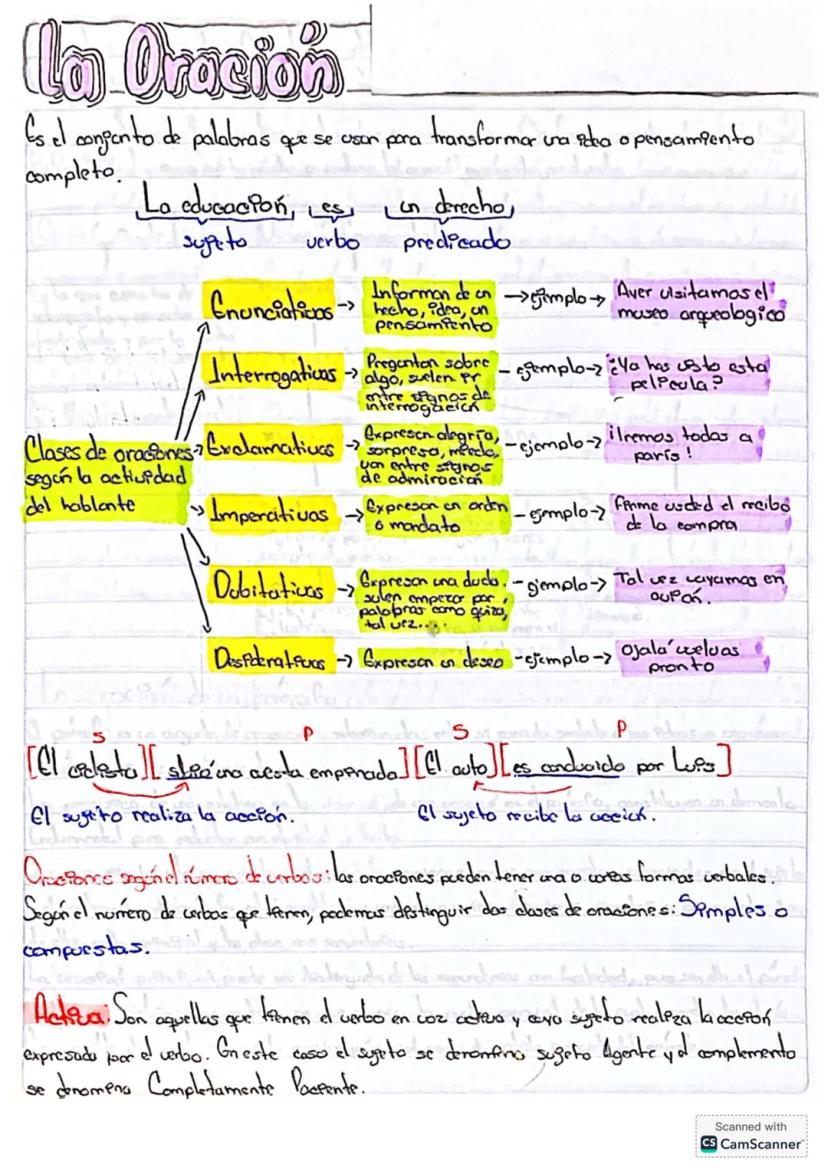 La Oración
Es el conjunto de palabras que se usan para transformar una idea o pensamiento
completo.
La educación, es un derecho,
sujeto verbo predicado
Enunciativas → Informan de un hecho, idea, un pensamiento → ejemplo → Ayer visitamos el museo arqueologico
Interrogativas → Preguntan sobre algo, suelen ir entre signos de interrogación - ejemplo → ¿Ya has visto esta pelicula?
Clases de oraciones según la actividad del hablante
Exclamativas → Expresan alegría, sorpresa, miedo, van entre signos de admiración - ejemplo → ¡Iremos todas a parís!
Imperativas → Expresan un orden o mandato - ejemplo → firme usded el recibo de la compra
Dubitativas → Expresan una duda, sulen empezar por palabras como quiza, tal vez.... - ejemplo → Tal vez vayamos en
Desiderativas → Expresan un deseo - ejemplo → Ojalá vuelvas pronto
S P S P
[El ciclista][ subió una cuesta empinada] [El auto][es conducido por Luis]
El sujeto realiza la acción. El sujeto recibe la acción.
Oraciones según el número de verbos: las oraciones pueden tener una o varias formas verbales.
Según el número de verbos que tienen, podemos distinguir dos clases de oraciones: Simples o
compuestas.
Activa: Son aquellas que tienen el verbo en voz activa y cuyo sujeto realiza la acción
expresada por el verbo. En este caso el sujeto se denomina sujeto Agente y el complemento
se denomina Completamente Paciente.
Scanned with
CS CamScanner